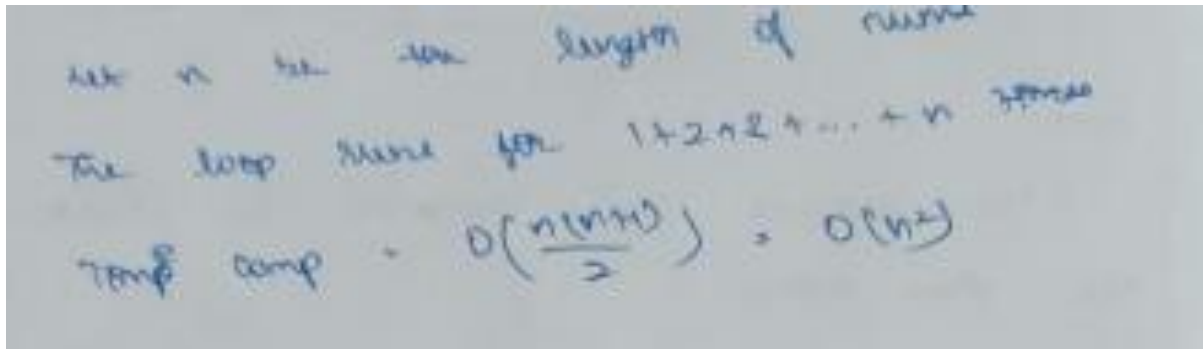 Let n be the length of nums
The loop runs for 1+2+2+...+n times
Time comp = O(n(n+1)/2) = O(n²)